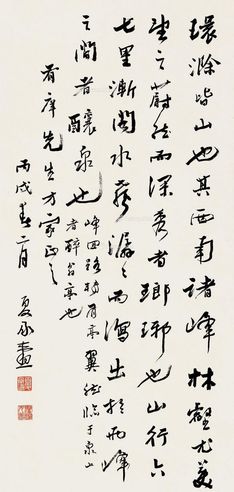 環滁皆山也其西南諸峰林壑尤美
望之蔚然而深秀者瑯琊也山行六
七里漸聞水聲潺〻而瀉出於兩峰
之間者釀泉也
峰回路轉有亭翼然臨于泉上
者醉翁亭也
庠先生方家正之
丙戌春二月 夏